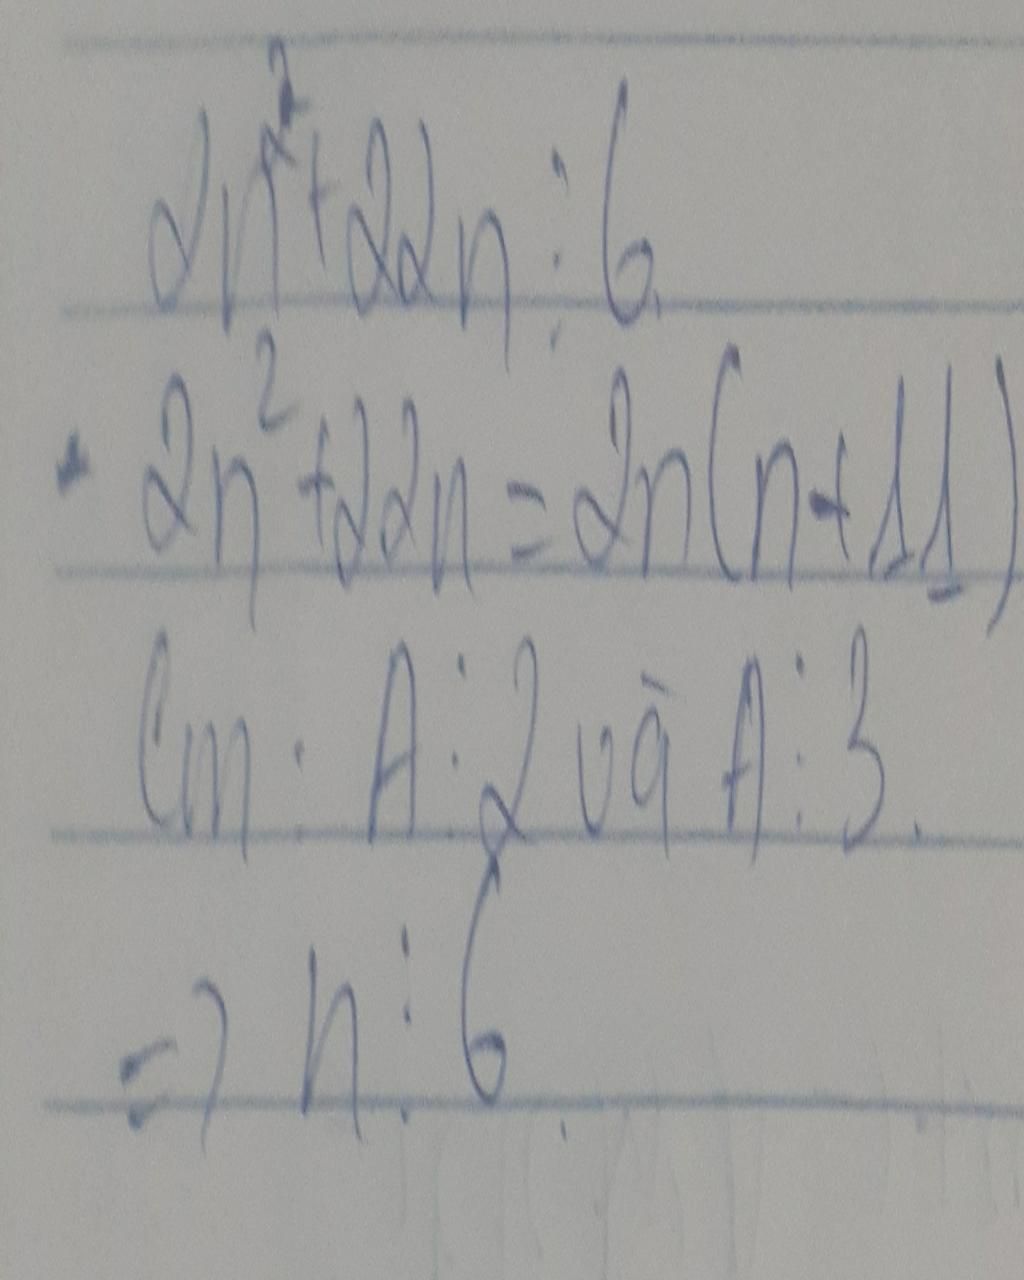 2n²+22n⋮6
2n²+22n=2n(n+11)
Cm: A⋮2 và A⋮3.
=> n⋮6